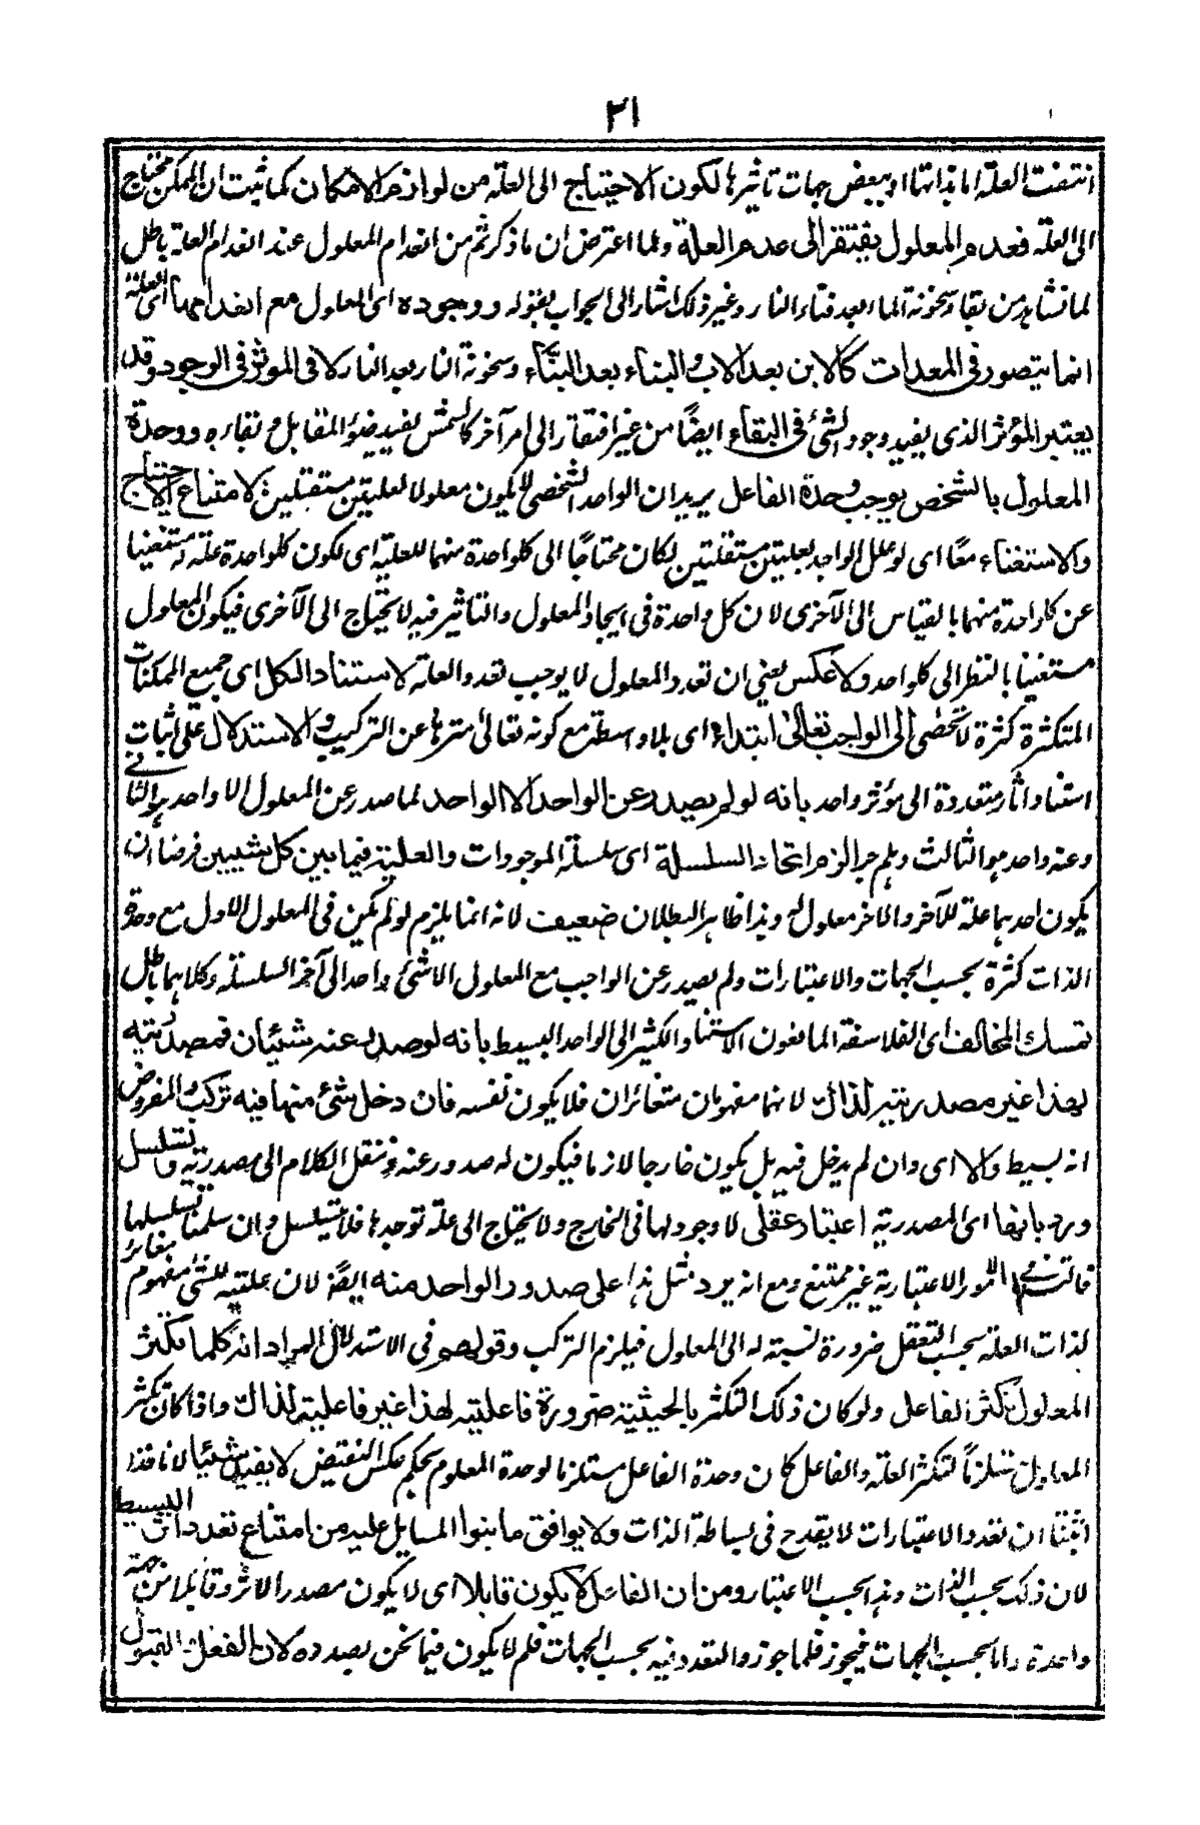 ٢١
انتفت العلة اما بذاتها او ببعض جهات تاثيرها لكون الاحتياج الى العلة من لوازم الامكان كما ثبت ان الممكن محتاج
الى العلة فعدم المعلول يفتقر الى عدم العلة ولما اعترض ان ما ذكرتم من انعدام المعلول عند انعدام العلة باطل
لما نشاهد من بقاء سخونة الماء بعد فناء النار وغير ذلك اشار الى الجواب بقوله ووجوده اى المعلول مع انعدامها اى العلة
انما يتصور فى المعدات كالابن بعد الاب والبناء بعد البناء وسخونة النار بعد النار لا فى الموثر فى الوجود وقد
يعتبر المؤثر الذى يفيد وجود الشئ فى البقاء ايضًا من غير افتقار الى امر آخر كالشمس يفيد ضوء المقابل وبقاءه ووحدة
المعلول بالشخص يوجب وحدة الفاعل يريد ان الواحد الشخصى لا يكون معلولا لعلتين مستقلتين لامتناع الاحتياج
والاستغناء معًا اى لو علل الواحد بعلتين مستقلتين لكان محتاجًا الى كل واحدة منهما للعلية اى لكون كل واحدة علة له مستغنيا
عن كل واحدة منهما بالقياس الى الآخرى لان كل واحدة فى ايجاد المعلول والتاثير فيه لا يحتاج الى الآخرى فيكون المعلول
مستغنيا بالنظر الى كل واحد ولا عكس يعنى ان تعدد المعلول لا يوجب تعدد العلة لاستناد الكل اى جميع الممكنات
المتكثرة كثرة لا تحصى الى الواجب تعالى ابتداء اى بلا واسطة مع كونه تعالى منزها عن التركيب والاستدلال على اثبات
استناد آثار متعددة الى مؤثر واحد بانه لو لم يصدر عن الواحد الا الواحد لما صدر عن المعلول الا واحد هو الثانى
وعنه واحد هو الثالث وهلم جرا لزم اتحاد السلسلة اى سلسلة الموجودات والعلية فيما بين كل شيئين فرضا ان
يكون احدهما علة للآخر والاخر معلول له وهذا ظاهر البطلان ضعيف لانه انما يلزم لو لم يكن فى المعلول الاول مع وحدة
الذات كثرة بحسب الجهات والاعتبارات ولم يصدر عن الواجب مع المعلول الاشئ واحد الى آخر السلسلة وكلاهما باطل
تمسك المخالف اى الفلاسفة المانعون الاستناد الكثير الى الواحد البسيط بانه لو صدر عنه شيئان فمصدريته
لهذا غير مصدريته لذاك لانهما مفهومان متغائران فلا يكون نفسه فان دخل شئ منهما فيه تركب المفروض
انه بسيط والا اى وان لم يدخل فيه بل يكون خارجا لازما فيكون له صدور عنه وننقل الكلام الى مصدريته وتسلسل
ورد بانها اى المصدرية اعتبار عقلى لا وجود لها فى الخارج ولا يحتاج الى علة توجدها فلا يتسلسل وان سلمنا تسلسلها
فالتسلسل فى الامور الاعتبارية غير ممتنع ومع انه يرد مثل هذا على صدور الواحد منه ايضًا لان علته للشئ مفهوم مغائر
لذات العلة بحسب التعقل ضرورة نسبته له الى المعلول فيلزم التركب وقولهم فى الاستدلال المراد انه كلما تكثر
المعلول تكثر الفاعل ولو كان ذلك التكثر بالحيثية ضرورة فاعليته لهذا غير فاعليته لذاك واذا كان تكثر
المعلول مستلزمًا لتكثر العلة والفاعل كان وحدة الفاعل مستلزما لوحدة المعلوم بحكم عكس النقيض لا يفيد شيئا لانا قد
اثبتنا ان تعدد الاعتبارات لا يقدح فى بساطة الذات ولا يوافق ما بنوا المسايل عليه من امتناع تعدد ذات البسيط
لان ذلك بحسب الذات وهذا بحسب الاعتبار ومن ان الفاعل لا يكون قابلا اى لا يكون مصدر الاثر وقابلا من جهة
واحدة واما بحسب الجهات فيجوز فلما جوزوا التعدد فيه بحسب الجهات فلم لا يكون فيما نحن بصدده لان الفعل القبول